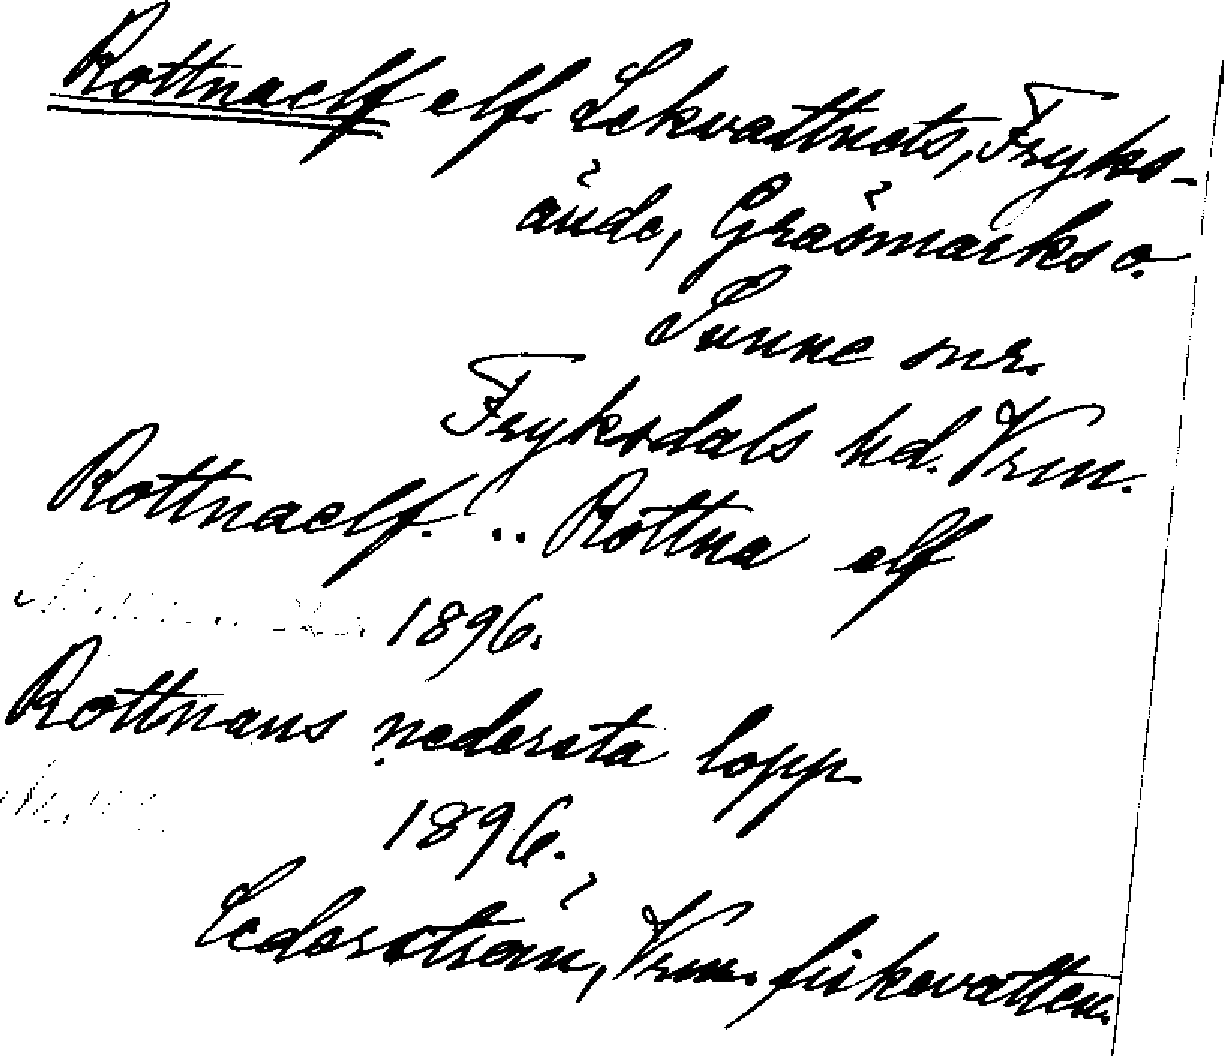 Rottnaelf elf. Lekvattnets, Fryks-
ände, Gräsmarks o.
Sunne snr.
Fryksdals hd. Vrm.
Rottnaelf. .. Rottna elf
1896.
Rottnans nedersta lopp.
1896.
Cederström, Vrm. fiskevatten.